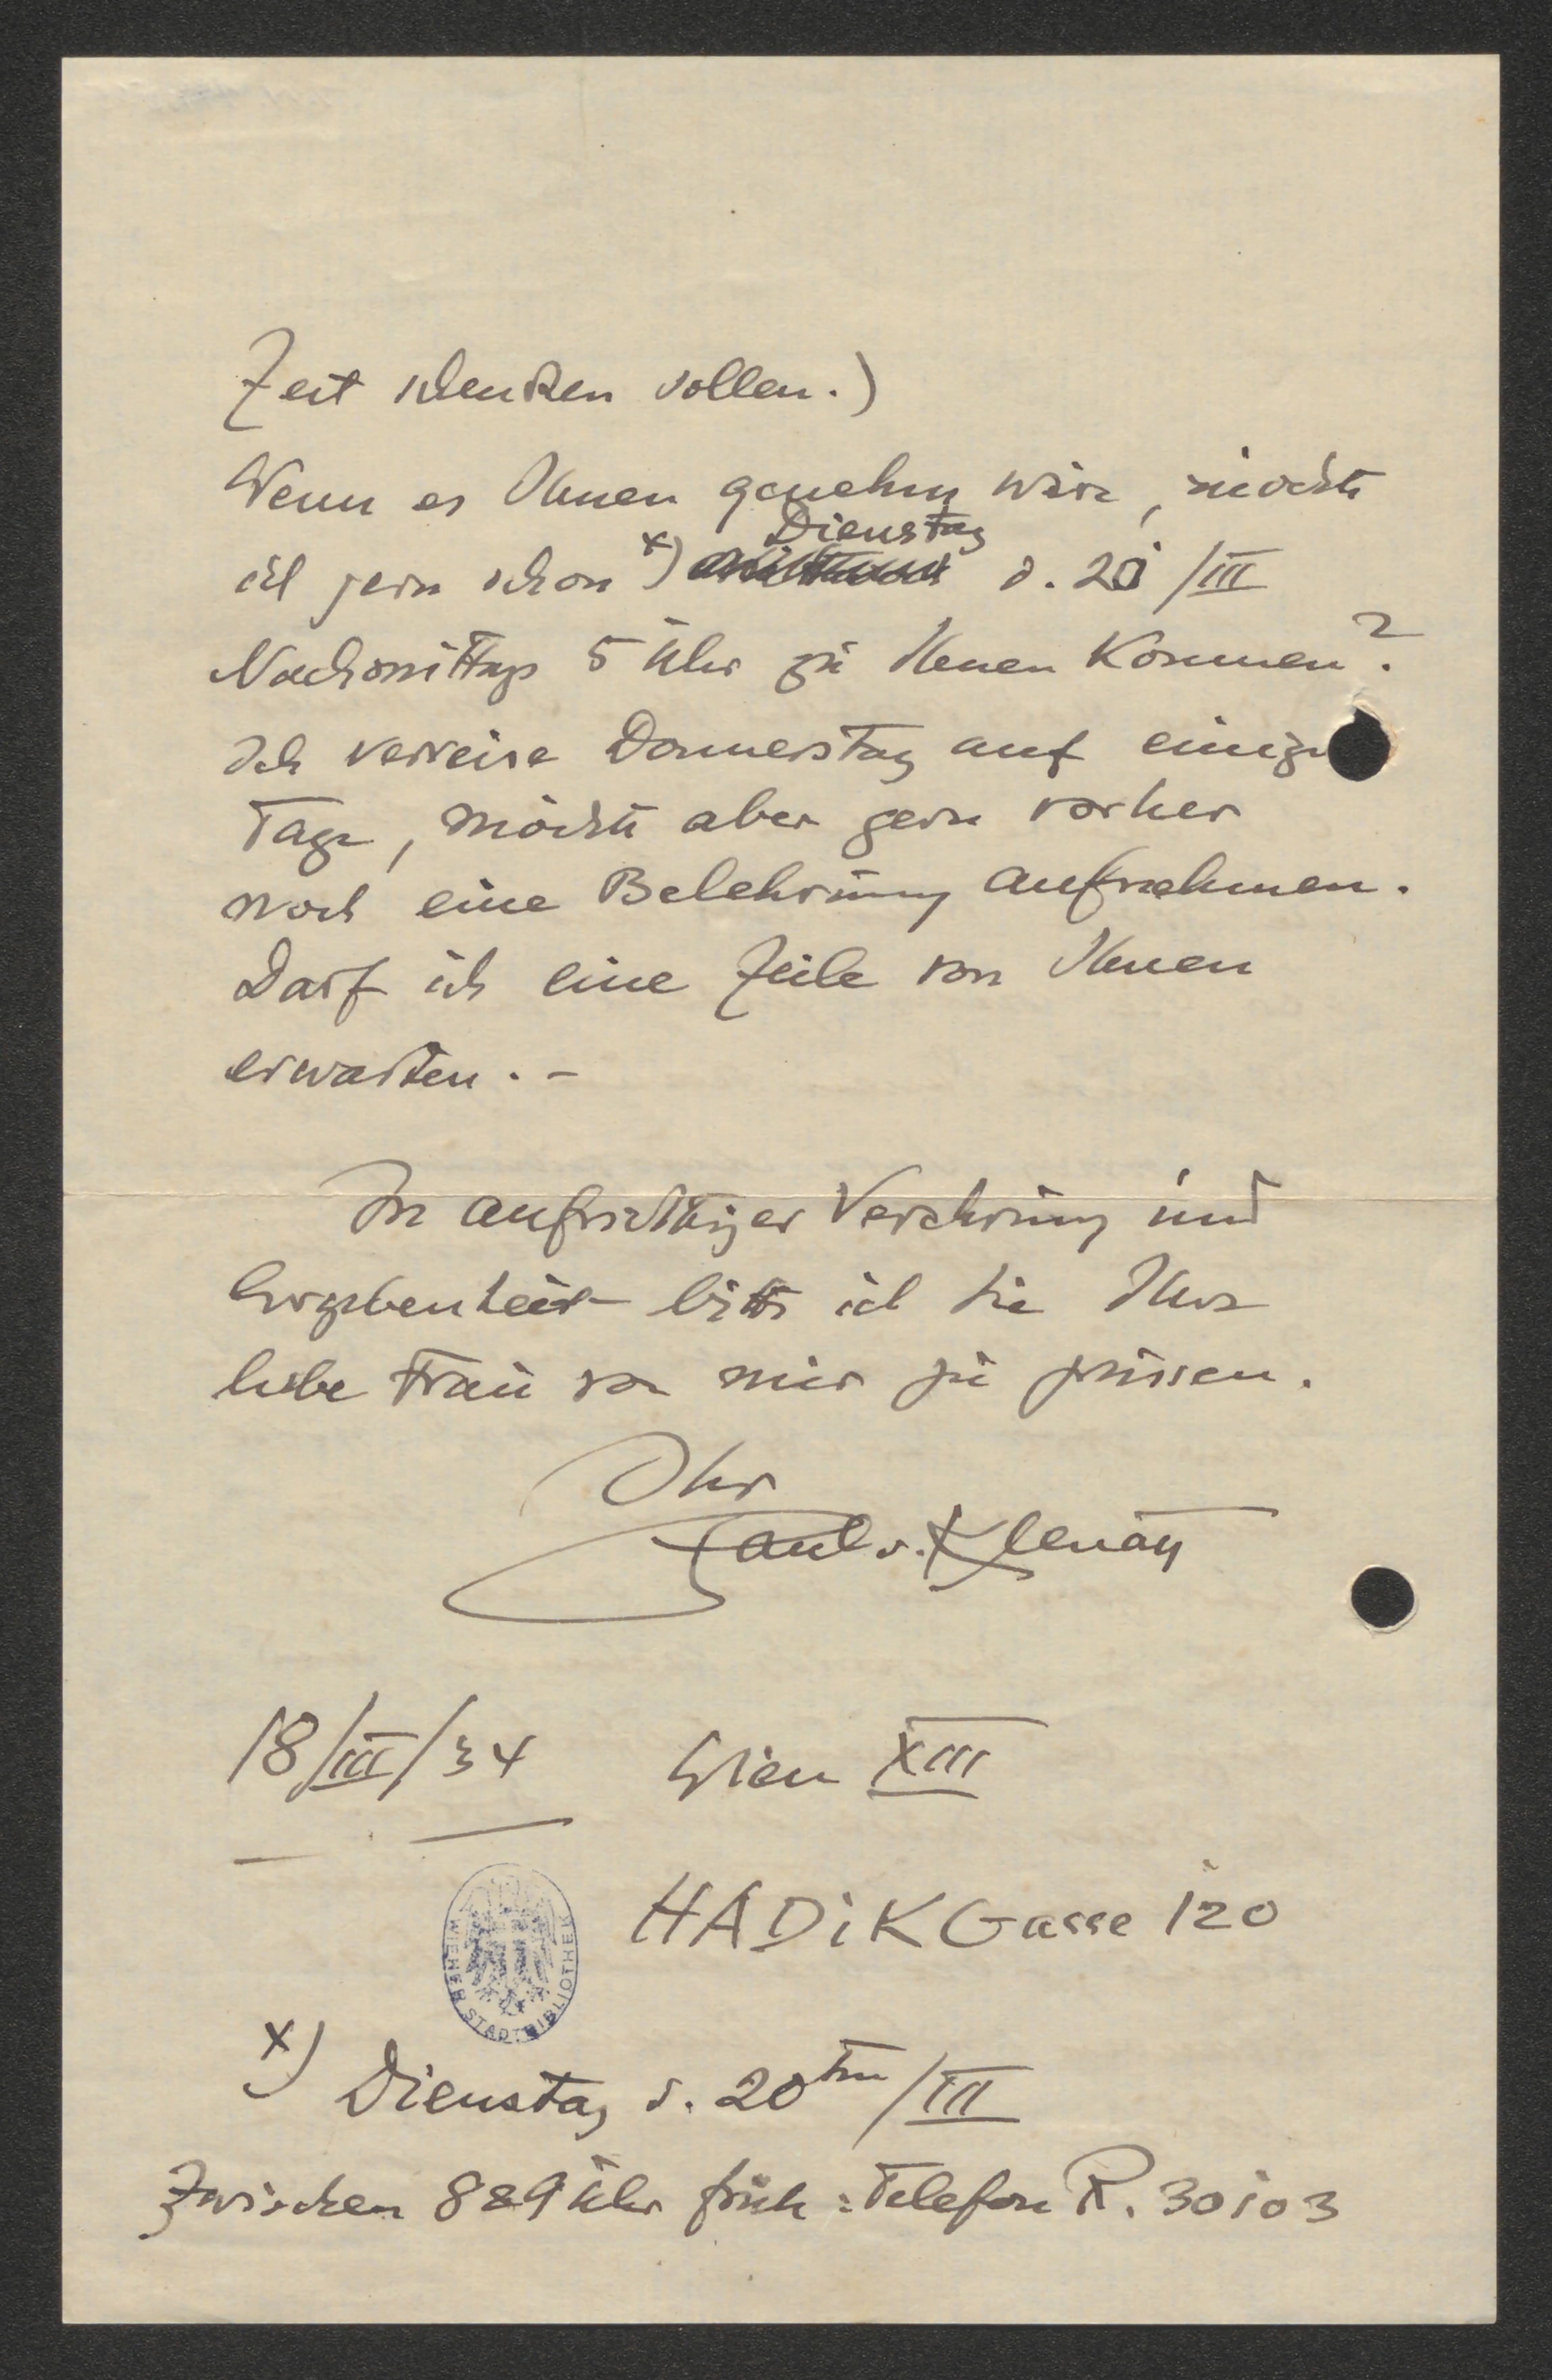 Zeit schenken wollen.)
Wenn es Ihnen genehm wäre, möchte
ich gern schon x) Dienstag d. 20 /III
Nachmittags 5 Uhr zu Ihnen kommen?
Ich verreise Donnerstag auf einige
Tage, möchte aber gern vorher
noch eine Belehrung aufnehmen.
Darf ich eine Zeile von Ihnen
erwarten. -
In aufrichtiger Verehrung und
Ergebenheit bitte ich Sie Ihre
liebe Frau von mir zu grüssen.
Ihr
Paul v. Klenau
18/III/34 Wien XIII
HADiKGasse 120
WIENER STADTBIBLIOTHEK
x) Dienstag d. 20ten/III
Zwischen 8 & 9 Uhr früh : Telefon R. 30103